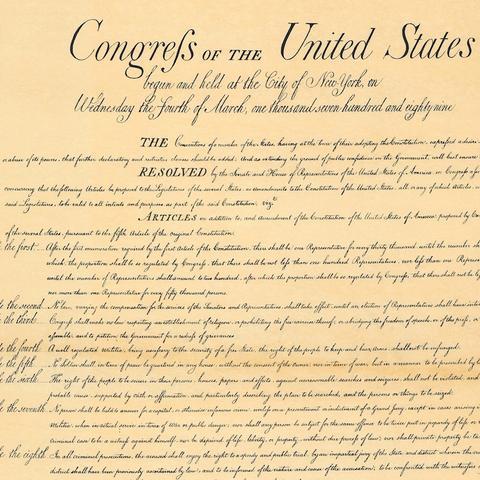 Congreſs OF THE United States
begun and held at the City of New-York, on
Wednesday the Fourth of March, one thousand seven hundred and eighty nine
THE Conventions of a number of the States, having at the time of their adopting the Constitution, expreſsed a desire
or abuse of its powers, that further declaratory and restrictive clauses should be added: And as extending the ground of public confidence in the Government, will best ensure
RESOLVED by the Senate and House of Representatives of the United States of America, in Congreſs
concurring, that the following Articles be proposed to the Legislatures of the several States, as amendments to the Constitution of the United States, all, or any of which Articles,
said Legislatures, to be valid to all intents and purposes, as part of the said Constitution; vizt
ARTICLES in addition to, and Amendment of the Constitution of the United States of America, proposed by
of the several States, pursuant to the fifth Article of the original Constitution.
the first... After the first enumeration required by the first Article of the Constitution, there shall be one Representative for every thirty thousand, until the number
which, the proportion shall be so regulated by Congreſs, that there shall be not leſs than one hundred Representatives, nor leſs than one
until the number of Representatives shall amount to two hundred, after which the proportion shall be so regulated by Congreſs, that there shall not be
nor more than one Representative for every fifty thousand persons.
the second No law, varying the compensation for the services of the Senators and Representatives, shall take effect, until an election of Representatives shall have
the third Congreſs shall make no law respecting an establishment of religion, or prohibiting the free exercise thereof; or abridging the freedom of speech, or of the preſs; or
aſsemble, and to petition the Government for a redreſs of grievances.
the fourth A well regulated Militia, being neceſsary to the security of a free State, the right of the people to keep and bear Arms, shall not be infringed.
the fifth No Soldier shall, in time of peace be quartered in any house, without the consent of the owner, nor in time of war, but in a manner to be prescribed by
the sixth The right of the people to be secure in their persons, houses, papers, and effects, against unreasonable searches and seizures, shall not be violated, and
probable cause, supported by oath or affirmation, and particularly describing the place to be searched, and the persons or things to be seized.
the seventh No person shall be held to answer for a capital, or otherwise infamous crime, unleſs on a presentment or indictment of a Grand Jury, except in cases arising
Militia, when in actual service in time of War or public danger; nor shall any person be subject for the same offence to be twice put in jeopardy of life or
criminal case to be a witneſs against himself, nor be deprived of life, liberty, or property, without due proceſs of law; nor shall private property be
the eighth In all criminal prosecutions, the accused shall enjoy the right to a speedy and public trial, by an impartial jury of the State and district wherein the
district shall have been previously ascertained by law, and to be informed of the nature and cause of the accusation; to be confronted with the